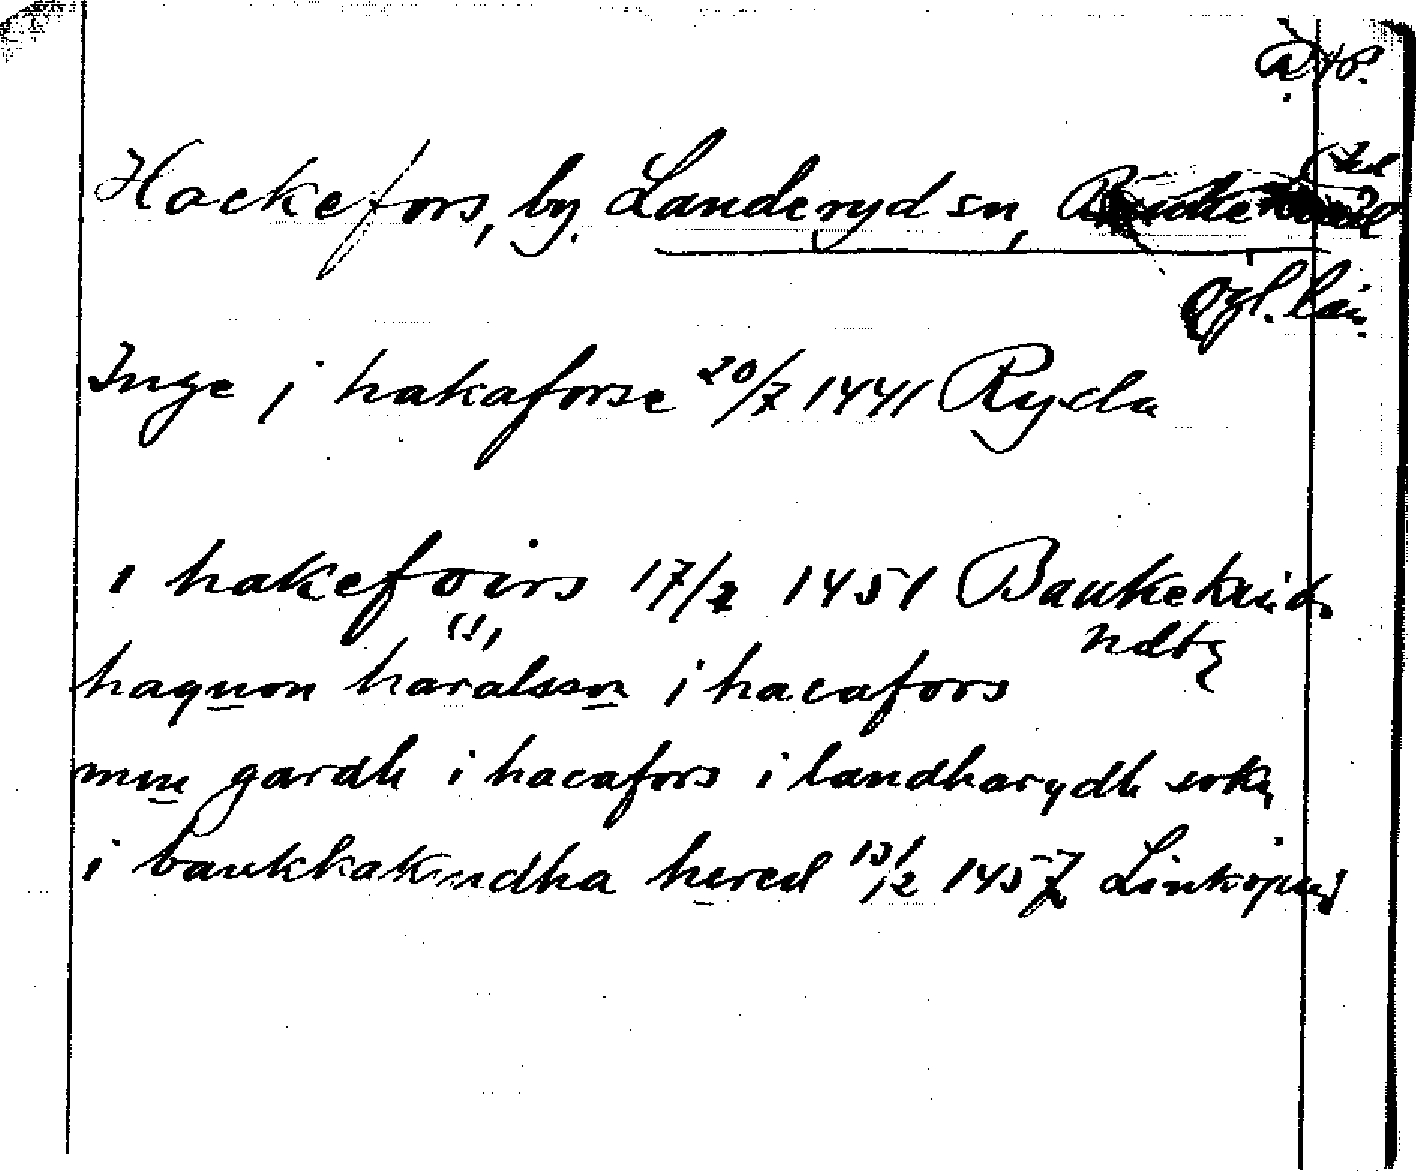 Hackefors, by, Landeryd sn,
Ögl. län
Inge i hakaforse 20/7 1441 Ryda
i hakefoirs 17/2 1451 Bankekinds
(!),
hdtg
haqnon haralsson i hacafors
min gardh i hacafors i landharydh sokn
i bankkakindha hered 13/2 1457 Linköping